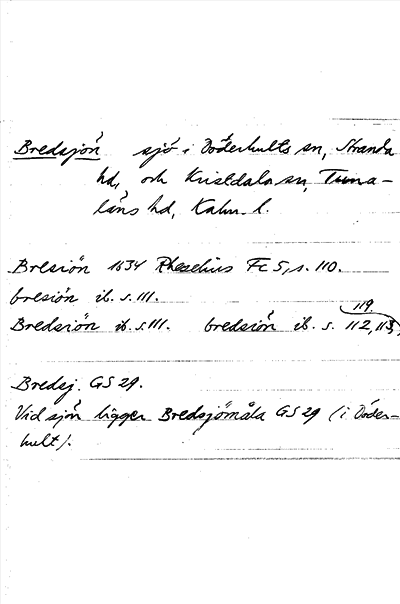 Bredsjön sjö i Döderhults sn, Stranda
hd, och Kristdala sn, Tuna-
läns hd, Kalm. l.
Bresiön 1634 Rheselius Fc 5, s. 110.
bresión ib. s. 111.
119.
Bredsiön ib. s. 111. bredsión ib. s. 112, 113,
Bredsj. GS 29.
Vid sjön ligger Bredsjömåla GS 29 (i Döder-
hult).